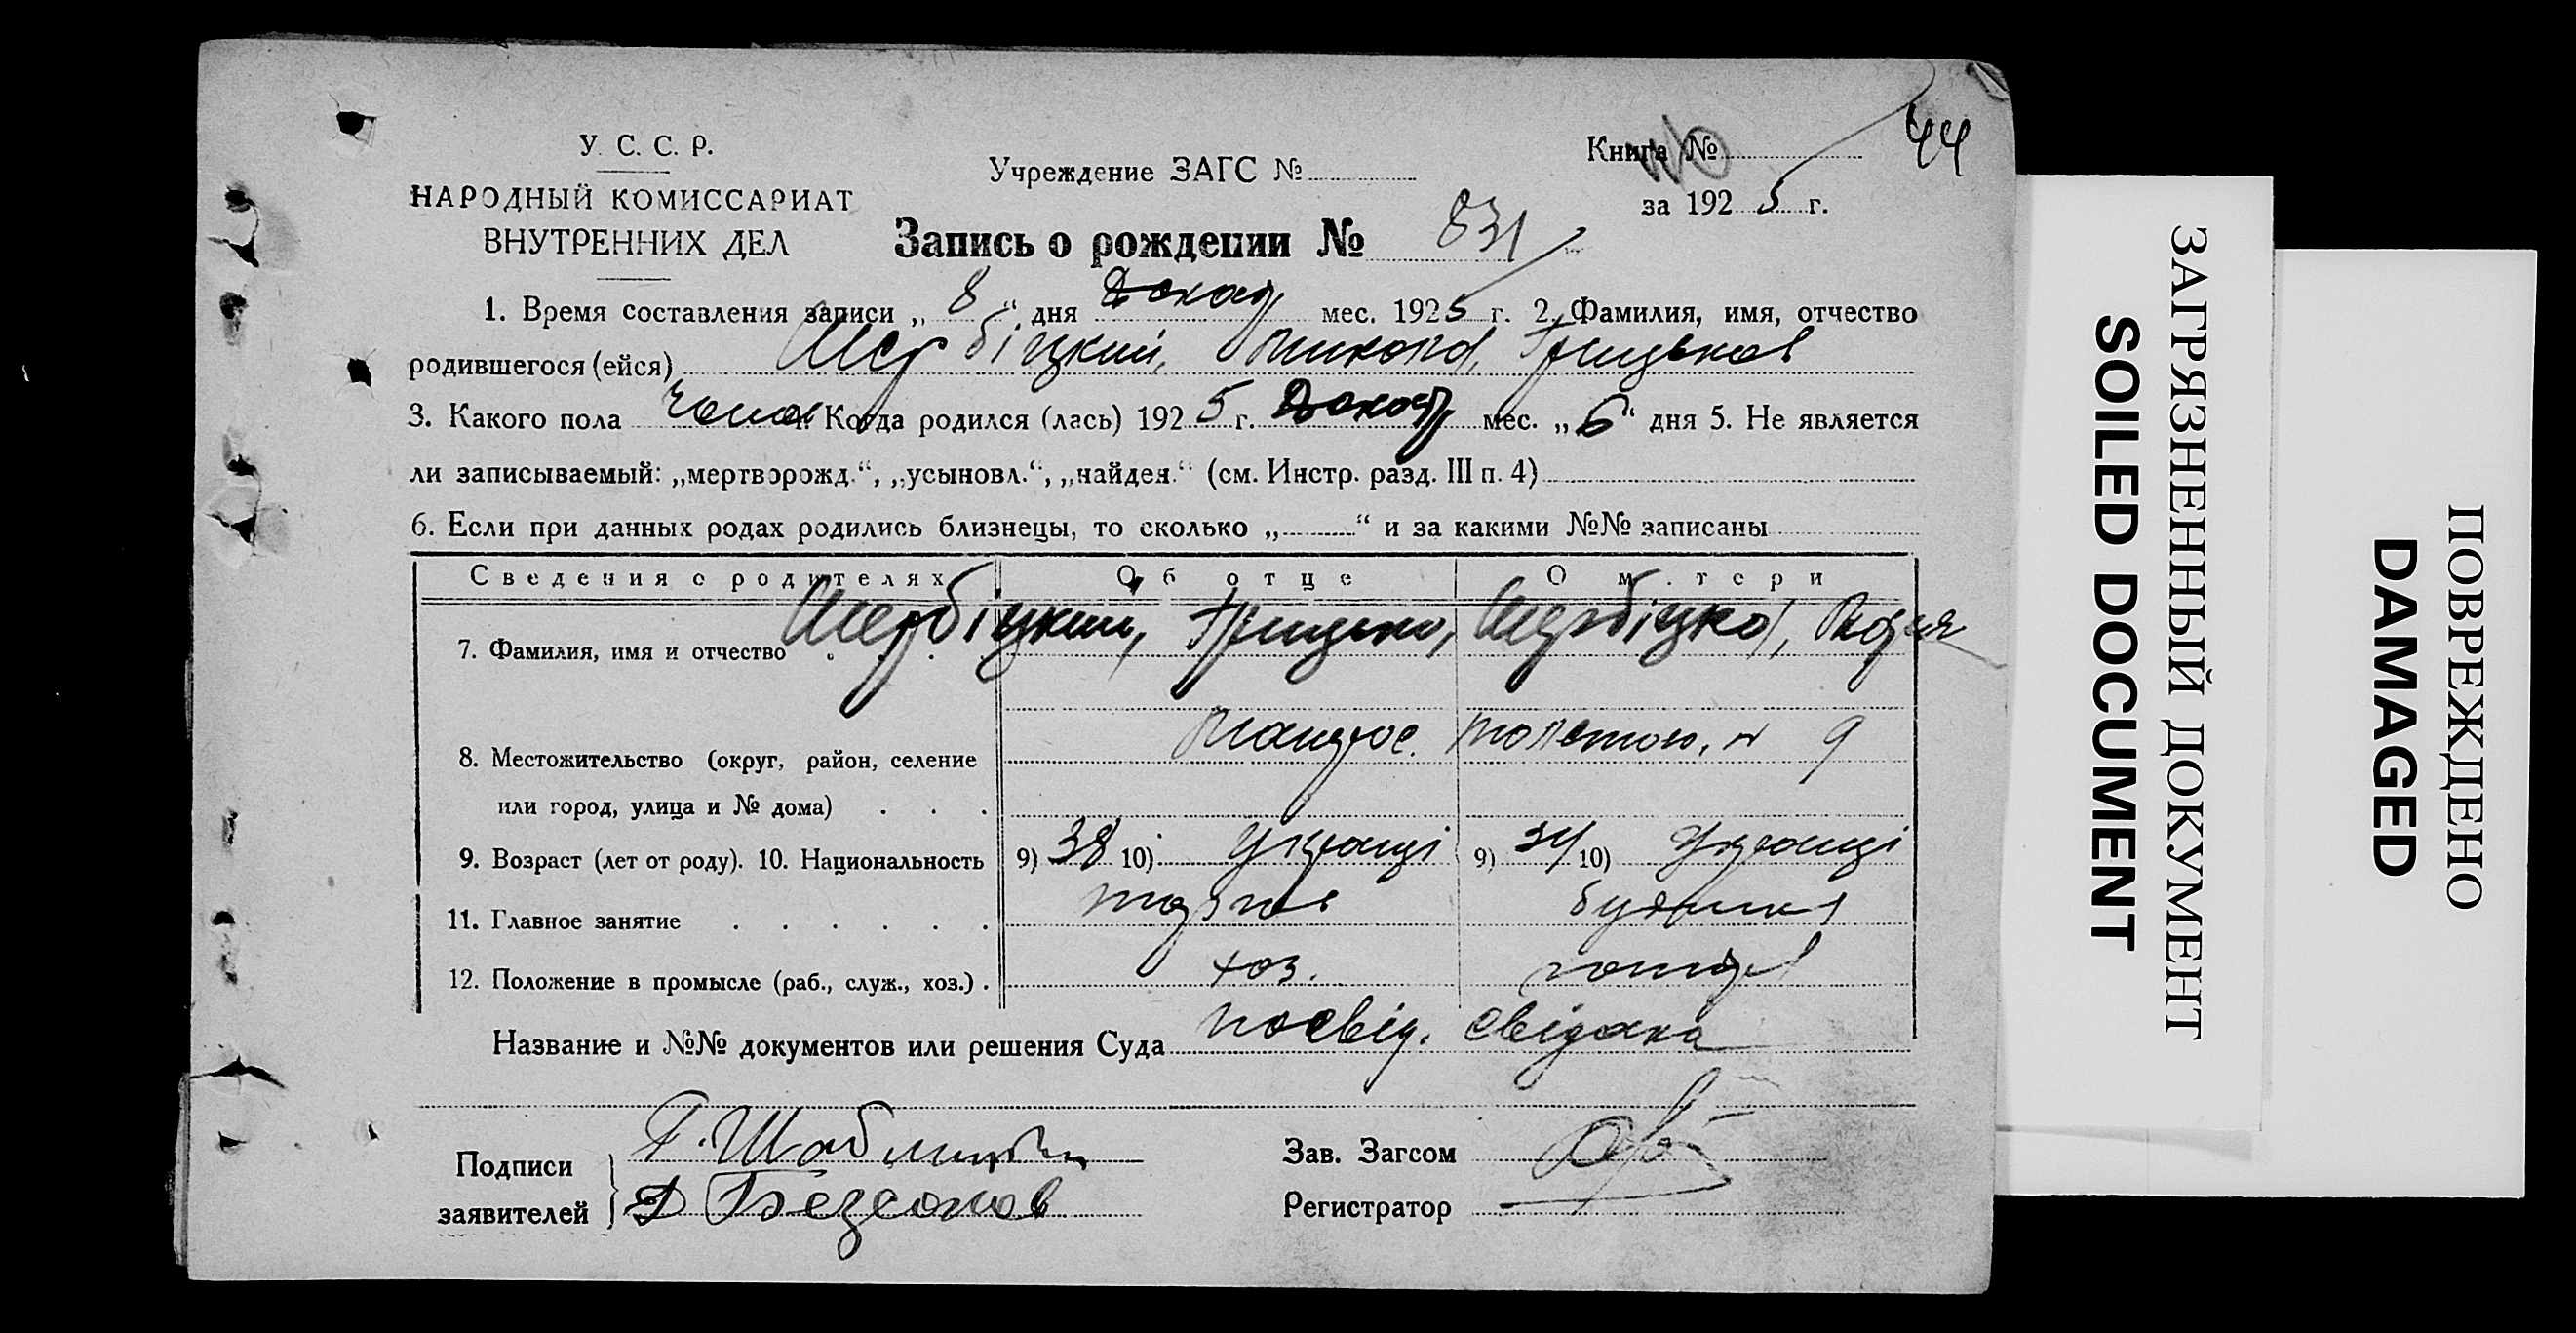 44
У. С. С. Р.
НАРОДНЫЙ КОМИССАРИАТ
ВНУТРЕННИХ ДЕЛ
Учреждение ЗАГС №
Книга №
за 1925 г.
Запись о рождении № 831
1. Время составления записи „ 8 “ дня мес. 1925 г. 2. Фамилия, имя, отчество
родившегося (ейся) Щербіцкий, Микола, Грицьков
3. Какого пола 4. Когда родился (лась) 1925 г. мес. „ 6 “ дня 5. Не является
ли записываемый: „мертворожд.“, „усыновл.“, „найден.“ (см. Инстр. разд. III п. 4)
6. Если при данных родах родились близнецы, то сколько „ “ и за какими №№ записаны
Сведения о родителях Об отце О матери
7. Фамилия, имя и отчество Щербіцкий, Грицько, Щербіцка,
8. Местожительство (округ, район, селение
или город, улица и № дома) 9
9. Возраст (лет от роду). 10. Национальность 9) 38 10) 9) 34 10)
11. Главное занятие
12. Положение в промысле (раб., служ., хоз.) хоз.
Название и №№ документов или решения Суда посвід. свідка
Подписи
заявителей
Д Безсонов
Зав. Загсом
Регистратор
ЗАГРЯЗНЕННЫЙ ДОКУМЕНТ
SOILED DOCUMENT
ПОВРЕЖДЕНО
DAMAGED